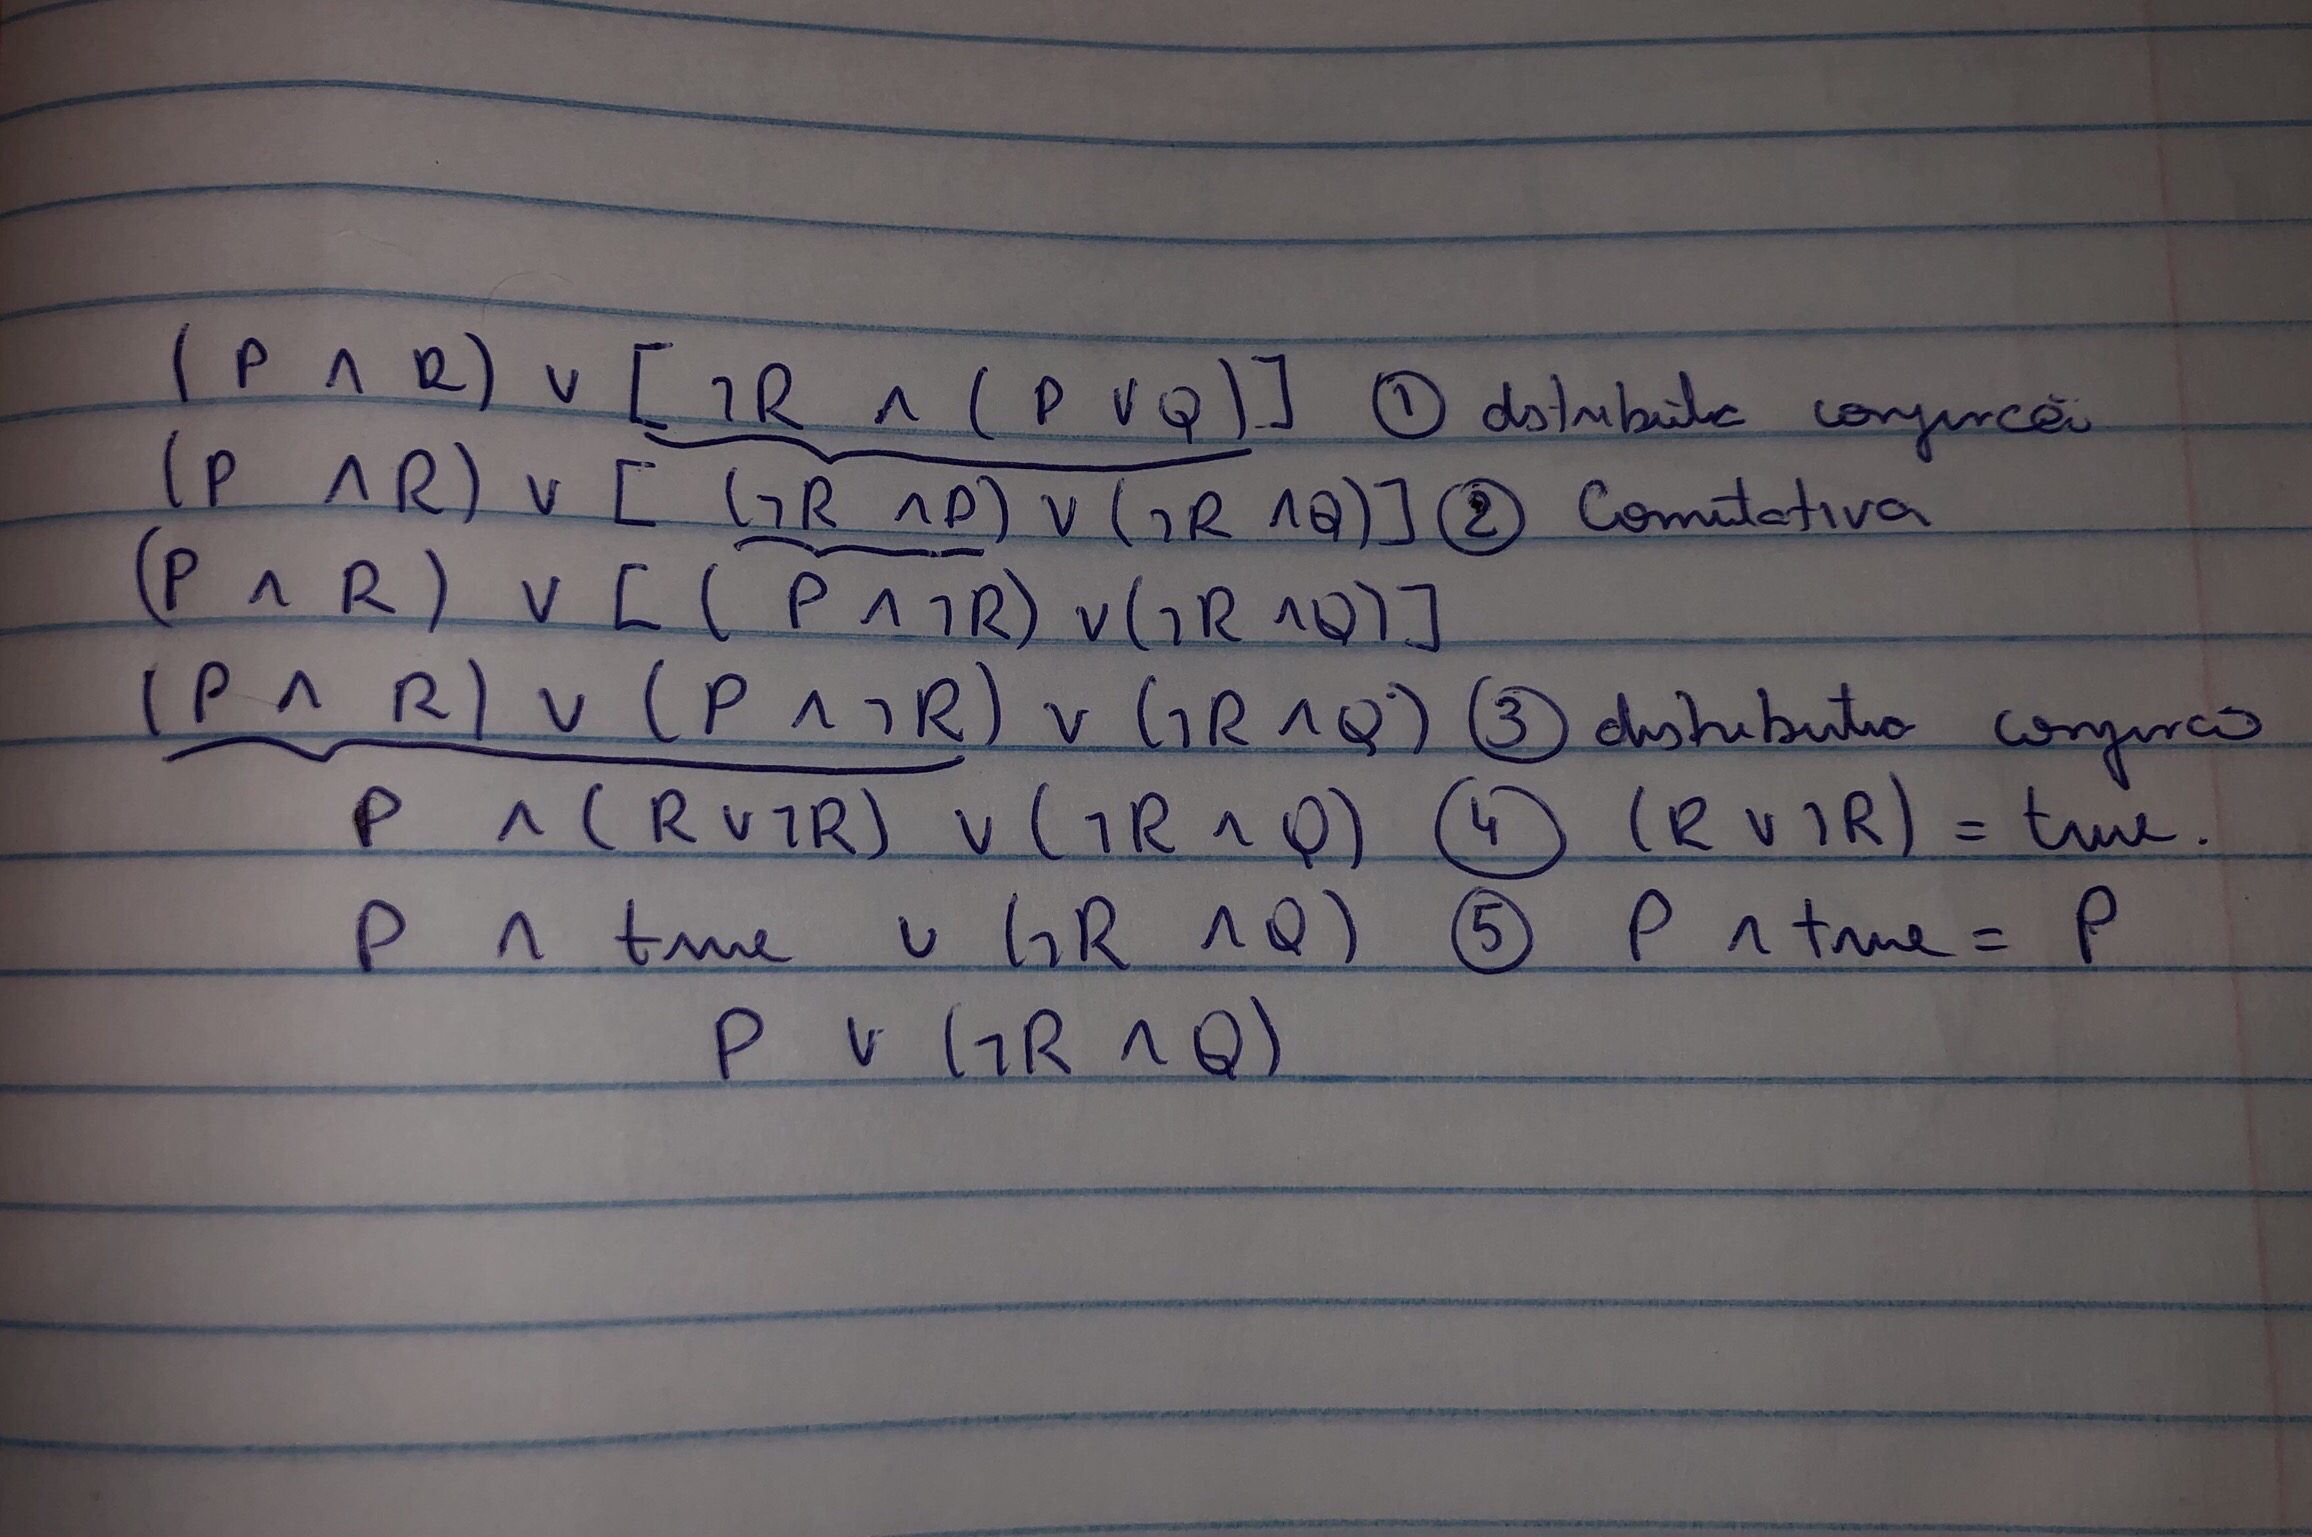 (P ∧ R) ∨ [¬R ∧ (P ∨ Q)] ① distributiva conjunção
(P ∧ R) ∨ [(¬R ∧ P) ∨ (¬R ∧ Q)] ② Comutativa
(P ∧ R) ∨ [(P ∧ ¬R) ∨ (¬R ∧ Q)]
(P ∧ R) ∨ (P ∧ ¬R) ∨ (¬R ∧ Q) ③ distributiva conjunção
P ∧ (R ∨ ¬R) ∨ (¬R ∧ Q) ④ (R ∨ ¬R) = true.
P ∧ true ∨ (¬R ∧ Q) ⑤ P ∧ true = P
P ∨ (¬R ∧ Q)